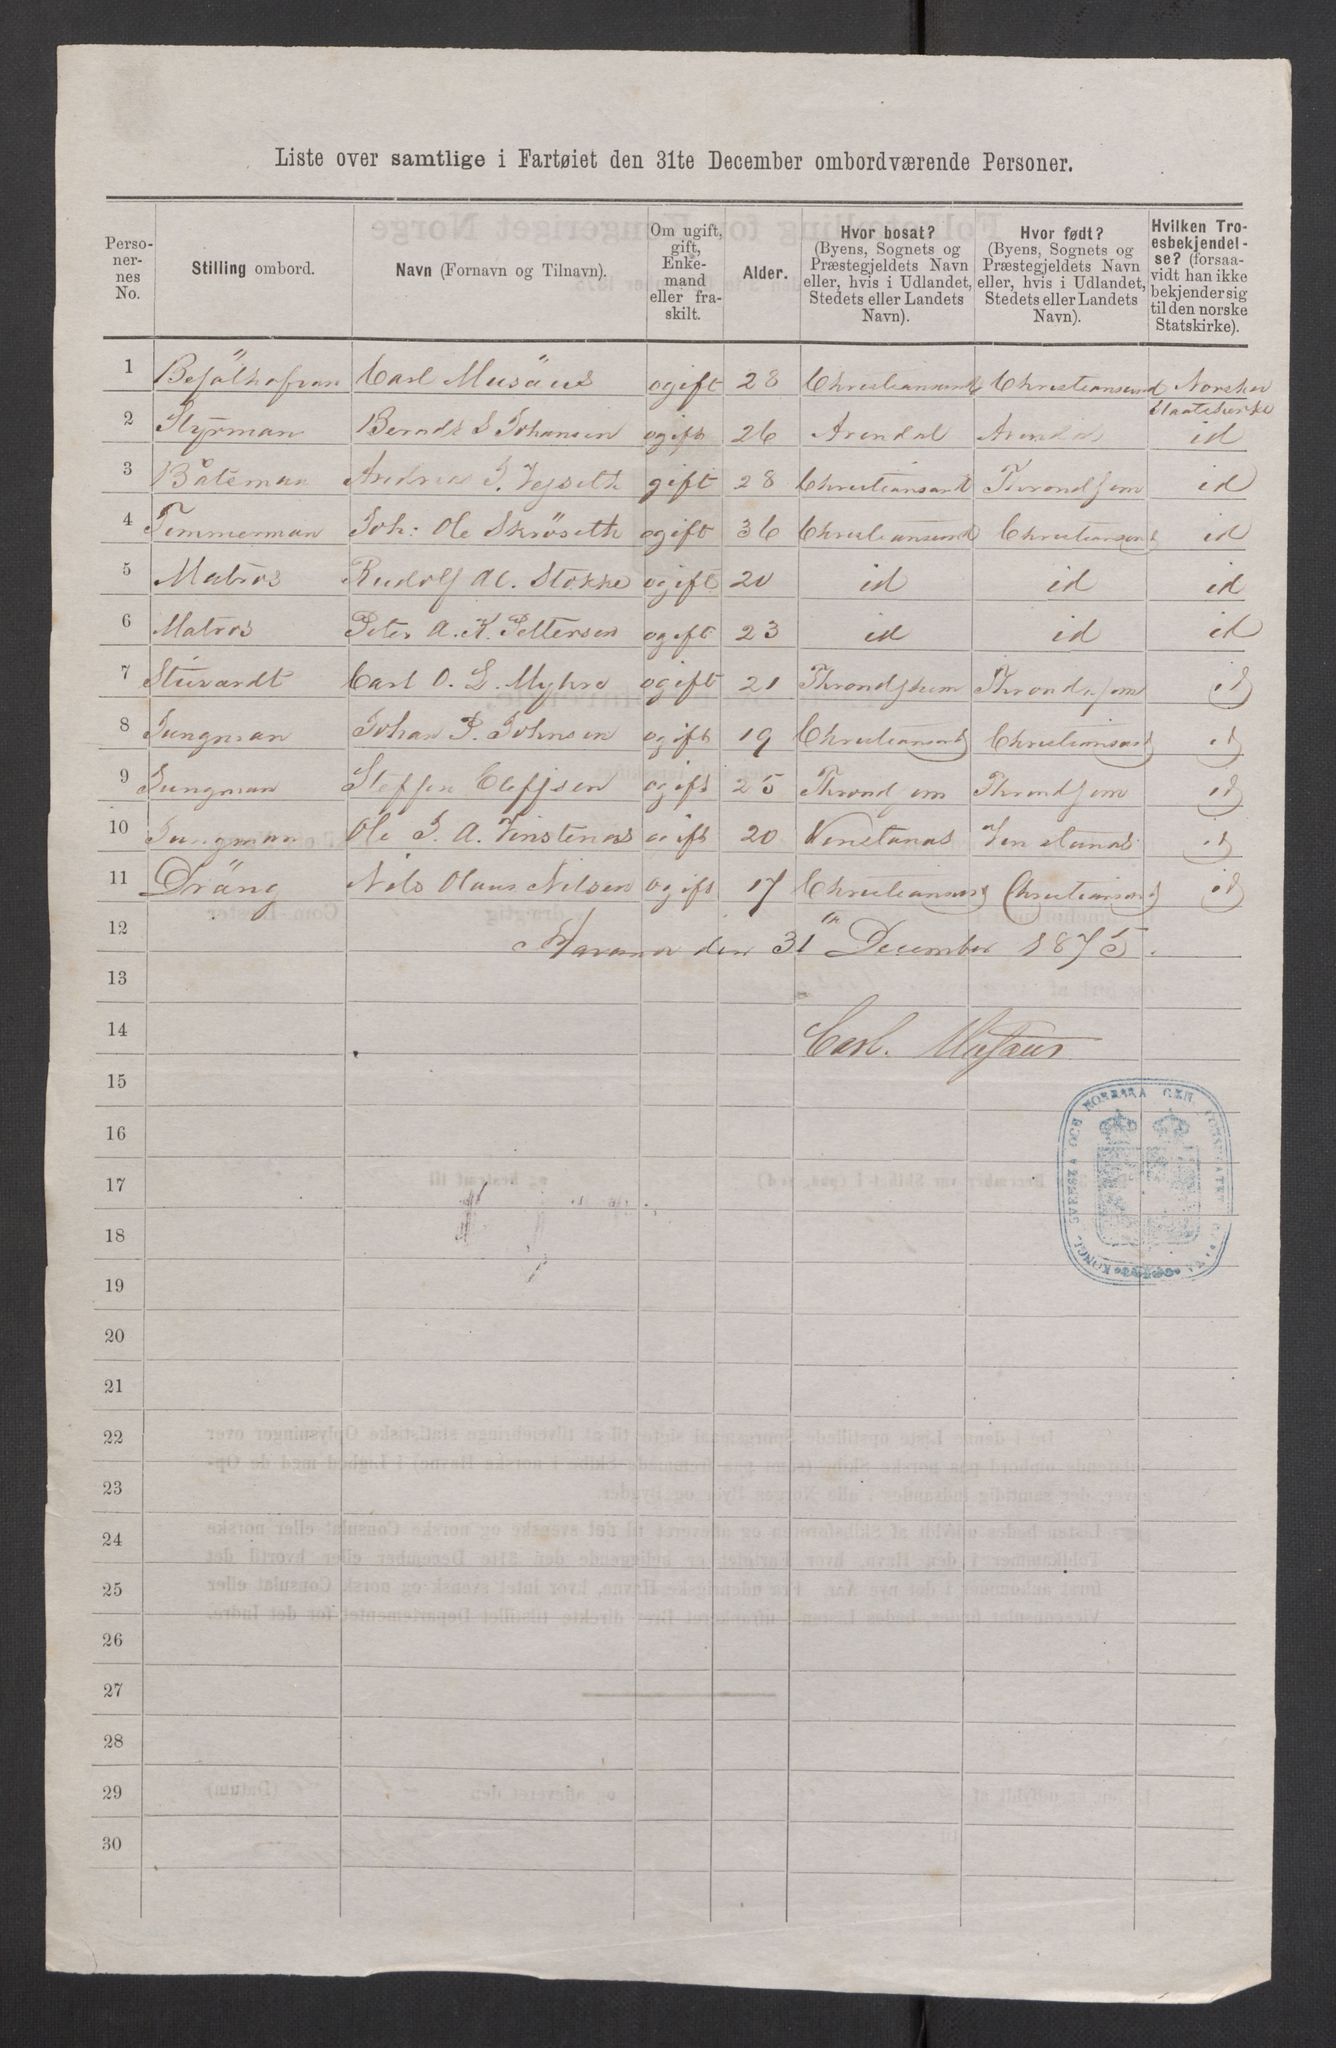 Liste over samtlige i Fartøiet den 31te December ombordværende Personer.
Perso-
ner-
nes
No.
Stilling ombord.
Navn (Fornavn og Tilnavn).
Om ugift,
gift,
Enke-
mand
eller fra-
skilt.
Alder.
Hvor bosat?
(Byens, Sognets og
Præstegjeldets Navn
eller, hvis i Udlandet,
Stedets eller Landets
Navn).
Hvor født?
(Byens, Sognets og
Præstegjeldets Navn
eller, hvis i Udlandet,
Stedets eller Landets
Navn).
Hvilken Tro-
esbekjendel-
se? (forsaa-
vidt han ikke
bekjender sig
til den norske
Statskirke).
1 Carl Musäus ogift 28 Christiansund Christiansund Norsken
Staatskerke
2 Styrman Berndt S Johansen ogift 26 Arendal Arendal id
3 Båtsman Andreas J. gift 28 Christiansund Throndjem id
4 Timmerman Joh: Ole Skröseth ogift 36 Christiansund Christiansund id
5 Matros Rudolf Al. Stokke ogift 20 id id id
6 Matros Peter A. K. Pettersen ogift 23 id id id
7 Stuvardt Carl O. L. Myhre ogift 21 Throndjhem Throndhjem id
8 Jungman Johan P. Johnsen ogift 19 Christiansund Christiansund id
9 Jungman Steffen ogift 25 Throndjem Throndjem id
10 Jungman Ole J. A. Vinstenas ogift 20 Venstanas Venstanas id
11 Dräng Nils Olaus Nilsen ogift 17 Christiansund Christiansund id
12 den 31 December 1875.
13
14 Carl. Musäus
15
16
17
18
19
20
21
22
23
24
25
26
27
28
29
30
KONGL. SVENSKA OCH NORSKA GEN. CONSULATET